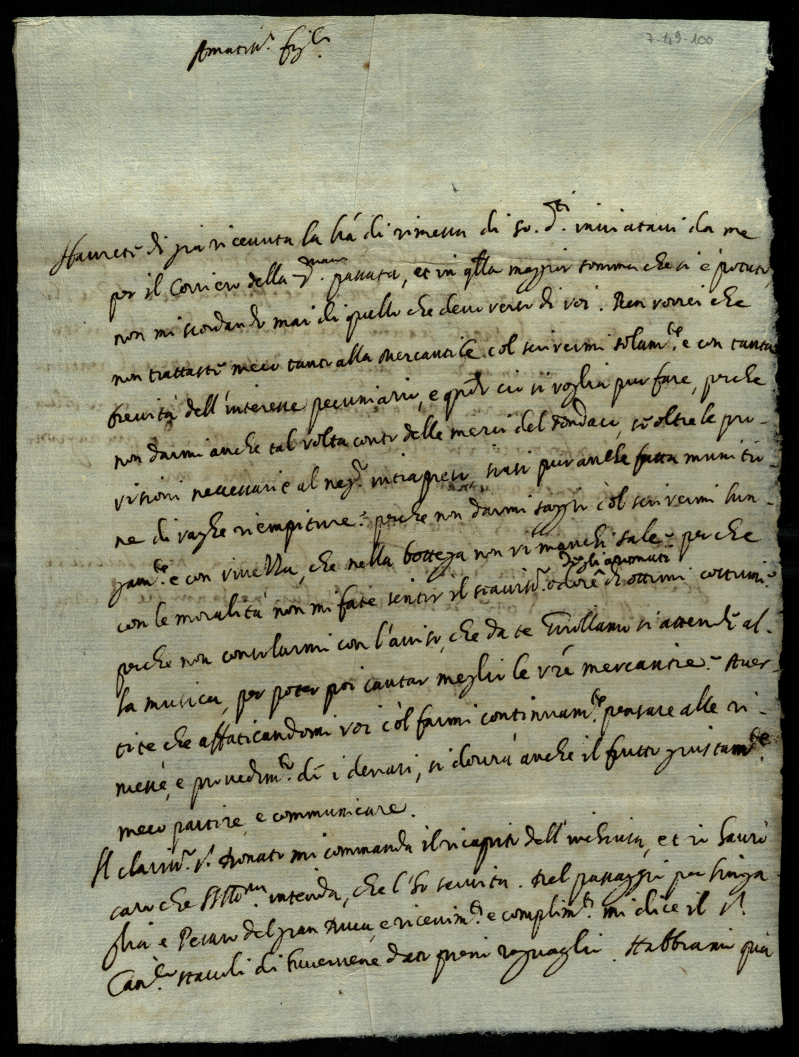 7-49-100
Amatiss.º figl.º
Havrete di già ricevuta la lrã di rimessa di so. d.ti inviatavi da me
per il Corriero della passata, et in qlla maggior somma che si è potuto,
non mi scordando mai di quello che devo verso di voi. Ben vorrei che
non trattaste meco tanto alla mercantile col scrivermi solam.te e con tanta
brevità dell'interesse pecuniario, e qndo ciò si voglia pur fare, perche
non darmi anche tal volta conto delle merci del fondaco, se oltre le pro-
visioni necessarie al neg.º intrapreso, siasi pur anche fatta munitio-
ne di vaghe riempiture? perche non darmi saggio col scrivermi lun-
gam.te e con vivezza, che nella bottega non vi manchi sale? perche
con le moralità non mi fate sentir il soaviss.º odore degli aromati di ottimi costumi?
perche non consolarmi con l'aviso, che da te Girollamo si attende al-
la musica, per poter poi cantar meglio le vrẽ mercantie? Aver-
tite che affaticandomi voi col farmi continuam.te pensare alle ri-
messe, e provedim.ti di i denari, si dovrà anche il frutto giustam.te
meco partire, e communicare.
Il clariss.º s.r Donato mi commanda il ricapito dell'inclusa, et io haurò
caro che intenda, che l'ho servito. Nel passaggio per Siniga
glia e Pesaro del gran Duca, e ricevim.ti e complim.ti mi dice il s.r
Can.co Staccoli di havervene dato pieni raguagli. Habbiamo qui